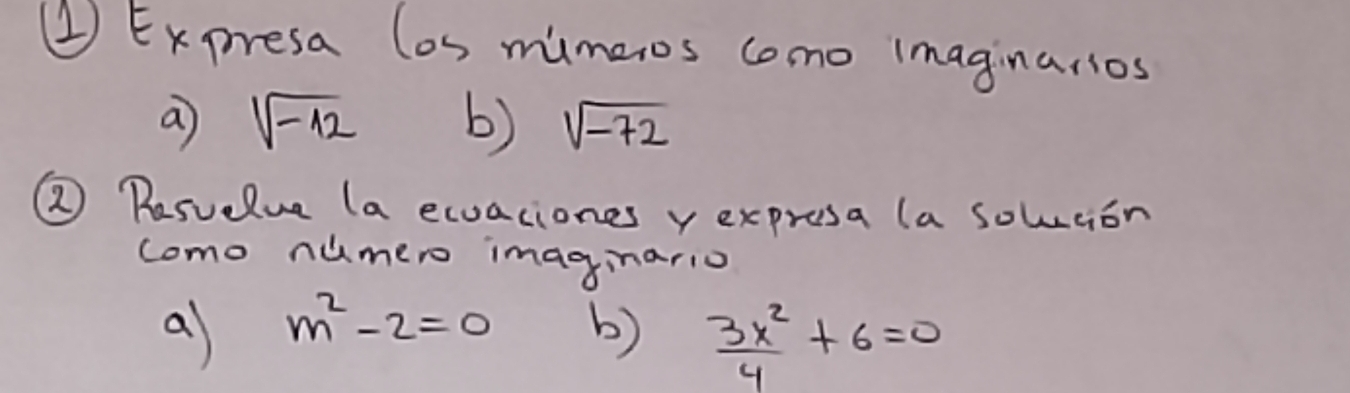 ① Expresa los números como imaginarios
a) √-12 b) √-72
② Resuelve la ecuaciones y expresa la solución
como número imaginario
a) m² - 2 = 0 b) 3x²/4 + 6 = 0